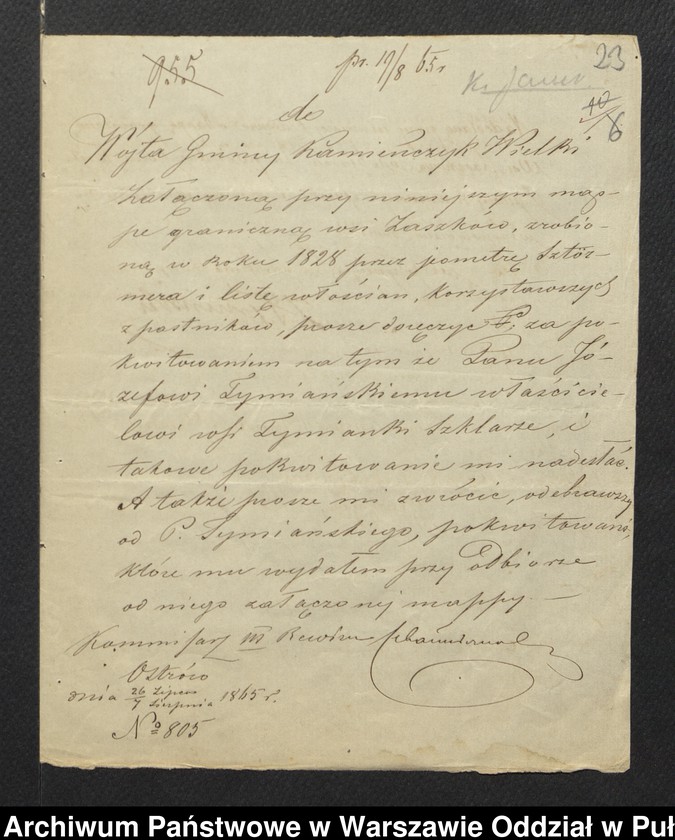 955
pr. 19/8 65 r
23
40
6
do
Wójta Gminy Kamieńczyk Wielki
Załączoną przy niniejszym map-
pę graniczną wsi Zaszków, zrobio-
ną w roku 1828 przez jometrę Sztór-
mera i listę włościan, korzystawszych
z pastników, prosze doręczyc za po-
kwitowaniem na tym że Panu Jó-
zefowi Tymiańskiemu właścicie-
lowi wsi Tymianki Szklarze, i
takowe pokwitowanie mi nadesłać.
A także prosze mi zwrócić, odebrawszy
od P. Tymiańskiego, pokwitowanie,
które mu wydałem przy odbiorze
od niego załączonej mappy. —
Kommisarz III Rewiru
Ostrów
dnia 26 Lipca / 7 Sierpnia 1865 r.
№ 805
Archiwum Państwowe w Warszawie Oddział w Puł